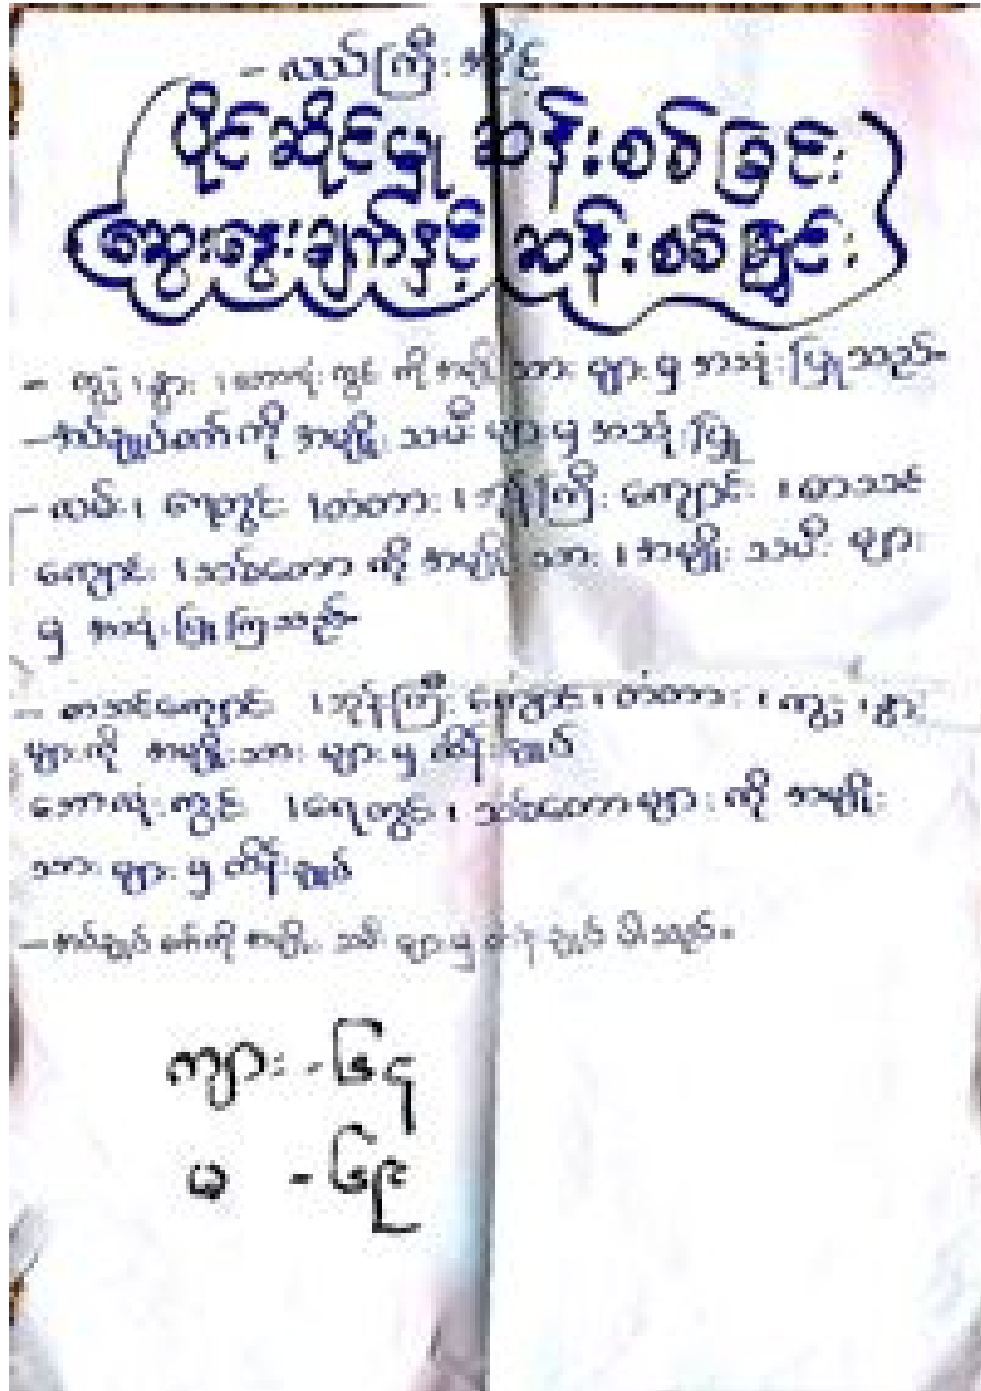 - လယ်ကြီးအိုင်
ပိုင်ဆိုင်မှု ဆန်းစစ်ခြင်း
ဆွေးနွေးချက်နှင့် ဆန်းစစ်ခြင်း
- ကျွဲ၊ နွား၊ ဘောလုံးကွင်း ကို အမျိုးသား များ မှ အသုံးပြုသည်။
- အပ်ချုပ်စက် ကို အမျိုးသမီး များ မှ အသုံးပြု
- လမ်း၊ ရေတွင်း၊ တံတား၊ ဘုန်းကြီး ကျောင်း၊ စာသင်
ကျောင်း၊ သစ်တော ကို အမျိုးသား၊ အမျိုးသမီး များ
မှ အသုံးပြုကြသည်။
- စာသင်ကျောင်း၊ ဘုန်းကြီး ကျောင်း၊ တံတား၊ ကျွဲ၊ နွား
များကို အမျိုးသား များ မှ ထိန်းချုပ်
ဘောလုံးကွင်း၊ ရေတွင်း၊ သစ်တောများ ကို အမျိုး
သား များ မှ ထိန်းချုပ်
- အပ်ချုပ်စက်ကို အမျိုးသမီး များမှ ထိန်းချုပ် ပါသည်။
ကျား - ၆၄
မ - ၆၉